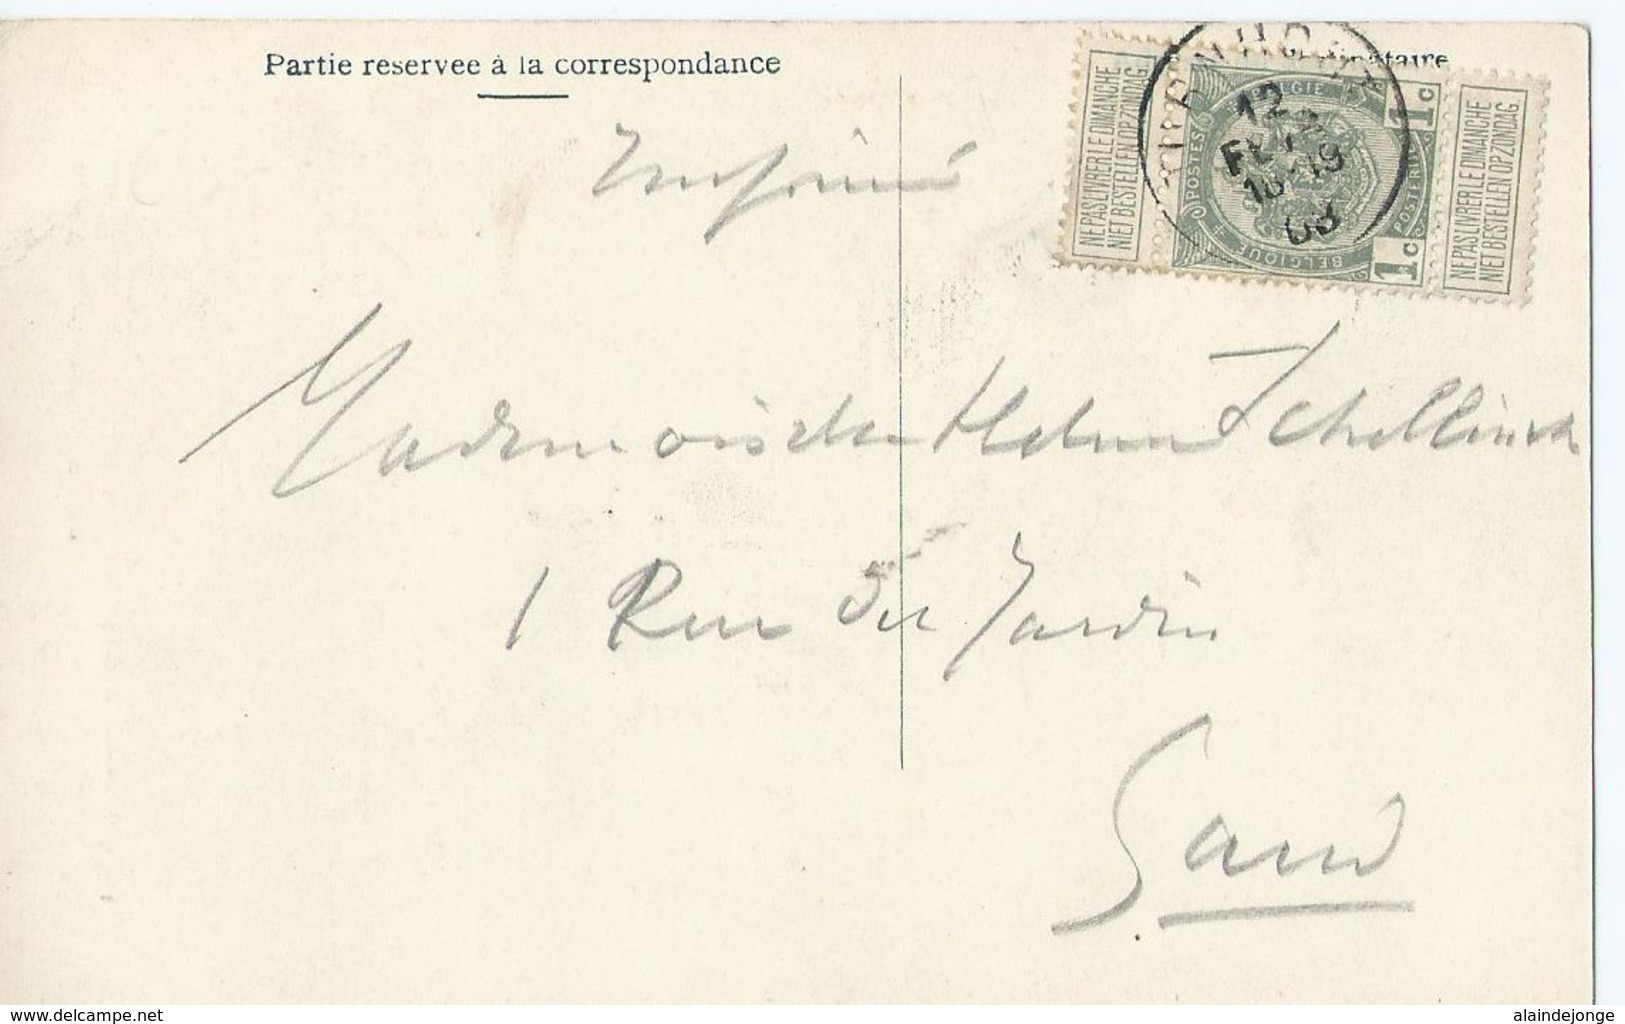 Partie reservee à la correspondance
Imprimé
Mademoiselle Helene Schellinck
1 Rue du Jardin
Gand
NE PAS LIVRER LE DIMANCHE
NIET BESTELLEN OP ZONDAG
POSTES BELGIE POSTERIJEN BELGIQUE
1c
1c
NE PAS LIVRER LE DIMANCHE
NIET BESTELLEN OP ZONDAG
12
FEVR
18-19
08
www.delcampe.net
alaindejonge